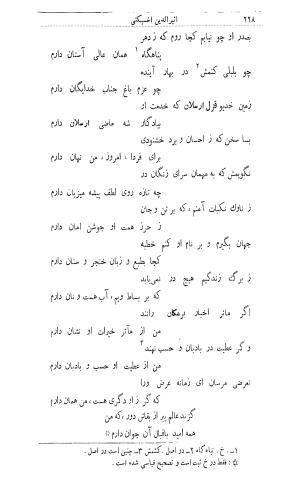 ۲۲۸ اثیرالدین اخسیکتی
بصدر او چو نیابم کجا روم که ز دهر
پناهگاه ۱ همان عالی آستان دارم
چو بلبلی کنمش ۲ در بهار آینده
چو عزم باغ جناب خدایگان دارم
زمین خدیو قزل ارسلان که خدمت او
بیادگار شه ماضی ارسلان دارم
بسا سخن که ز احسان و برد خشنودی
برای فردا، امروز، من نهان دارم
نگویمش که به مهمان سرای زنگان در
چه تازه روی لطف پیشه میزبان دارم
ز ناوک نکبات آمنم، که بر تن و جان
ز حرز همت او جوشن امان دارم
جهان بگیرم و بر نام او کنم خطبه
کجا بطبع و زبان خنجر و سنان دارم
ز برگ زندگیم هیچ در نمی‌یابد
که بر بساط ویم، آب هست و نان دارم
اگر مآثر اخبار برمکان رانند
من از مآثر خیرات او نشان دارم
و گر عطیت در بادبان و حسب نهند ۳
من از عطیت او حسب و بادبان دارم
تعرضی مرسان ای زمانه عرض ورا
که گر ز او دگری هست، من همان دارم
گزند عالم پیر از بقاش دور، که من
همه امید باقبال آن جوان دارم ☆
۱ـ . خ . نیاه گاه ۲ـ در اصل . کشمش ۳ـ چنین است در اصل .
☆ : فقط در خ ثبت است و تصحیح قیاسی شده است .